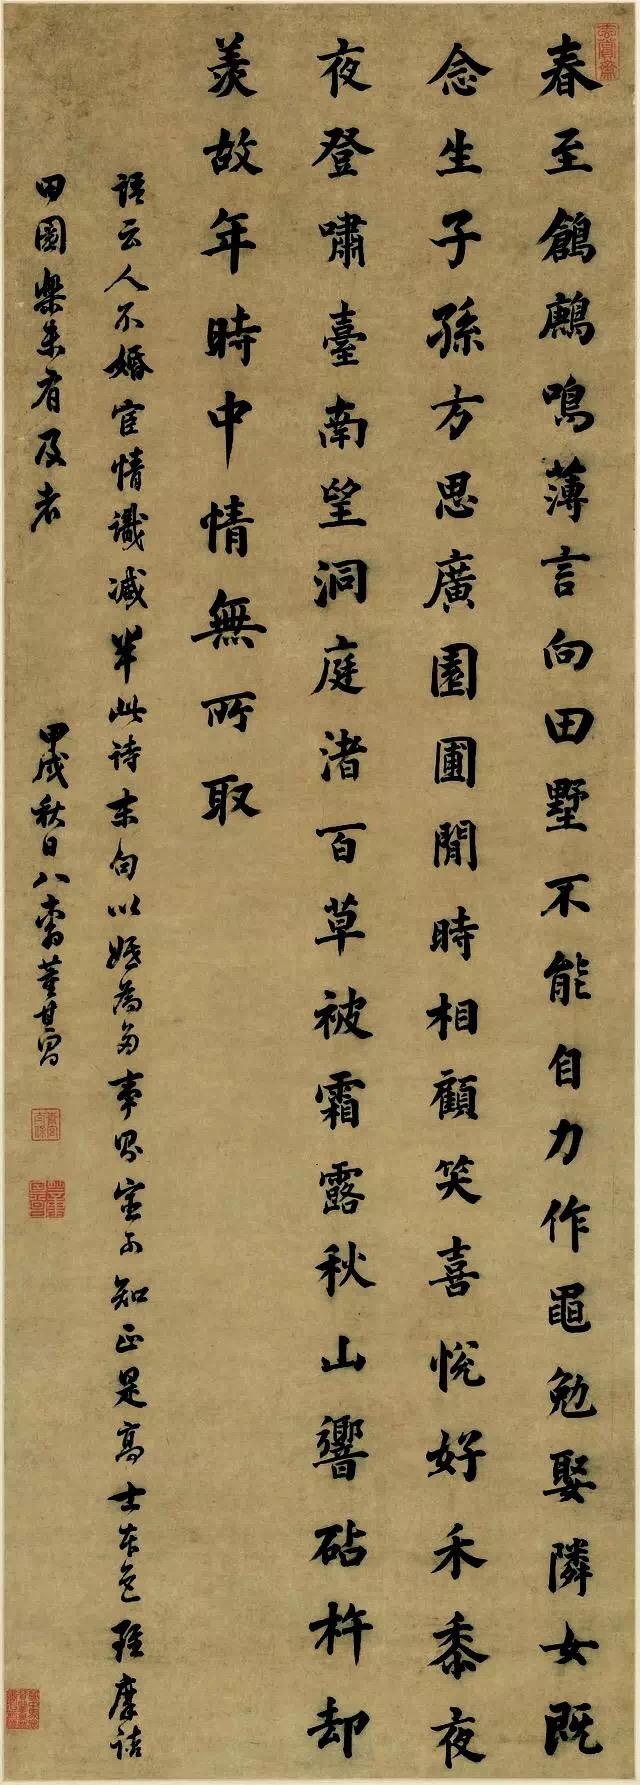 春至鶬鶊鳴薄言向田墅不能自力作黽勉娶隣女既
念生子孫方思廣園圃閒時相顧笑喜悅好禾黍夜
夜登嘯臺南望洞庭渚百草被霜露秋山響砧杵却
羨故年時中情無所取
語云人不婚宦情識減半此詩末句以婚為多事室知正是高士本色雖摩詰
田園樂未有及者
甲戌秋日八董其昌
玄賞齋